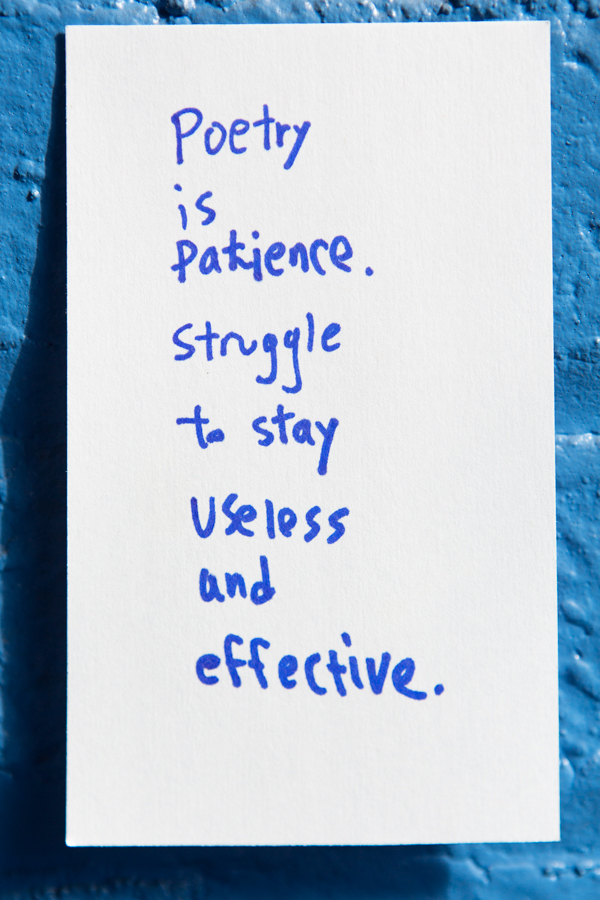 Poetry
is
Patience.
struggle
to stay
useless
and
effective.